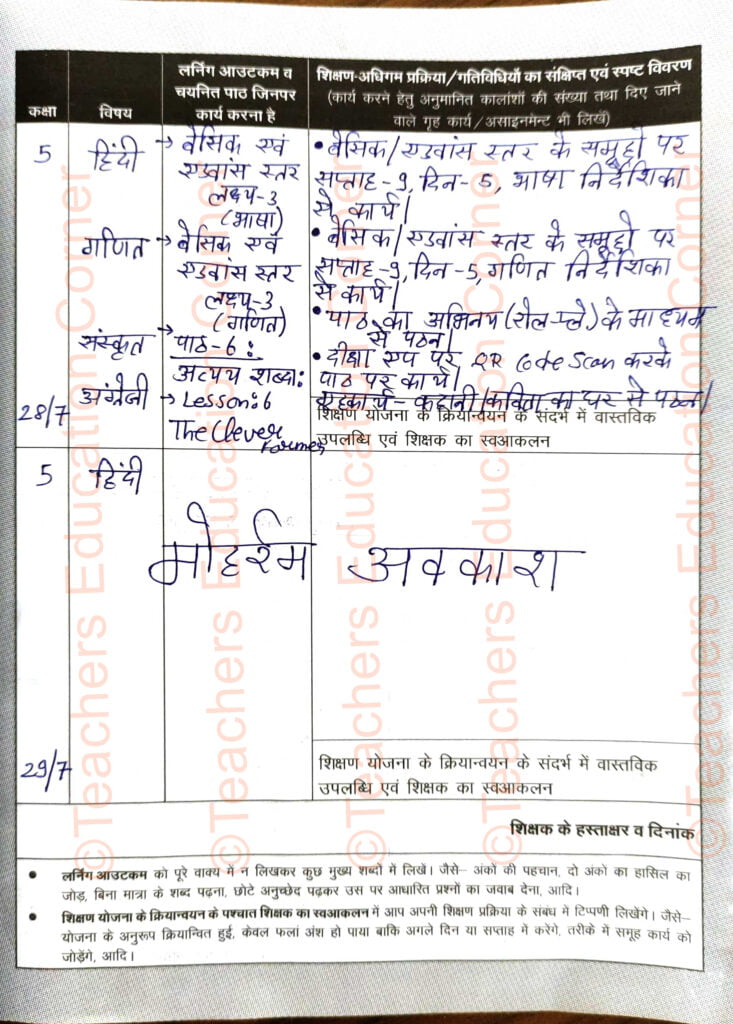 कक्षा
विषय
लर्निंग आउटकम व
चयनित पाठ जिनपर
कार्य करना है
शिक्षण-अधिगम प्रक्रिया/गतिविधियों का संक्षिप्त एवं स्पष्ट विवरण
(कार्य करने हेतु अनुमानित कालांशों की संख्या तथा दिए जाने
वाले गृह कार्य/असाइनमेंट भी लिखें)
5
हिंदी
→ बेसिक एवं
एडवांस स्तर
लक्ष्य-3
(भाषा)
• बेसिक/एडवांस स्तर के समूहों पर
सप्ताह-9, दिन-5, भाषा निर्देशिका
से कार्य।
गणित
→ बेसिक एवं
एडवांस स्तर
लक्ष्य-3
(गणित)
• बेसिक/एडवांस स्तर के समूहों पर
सप्ताह-9, दिन-5, गणित निर्देशिका
से कार्य।
संस्कृत
→ पाठ-6:
अव्यय शब्दा:
• पाठ का अभिनय (रोल-प्ले) के माध्यम
से पठन।
• दीक्षा एप पर QR Code Scan करके
पाठ पर कार्य।
अंग्रेजी
→ Lesson:6
The Clever
Farmer
गृहकार्य - कहानी/कविता का घर से पठन।
28/7
शिक्षण योजना के क्रियान्वयन के संदर्भ में वास्तविक
उपलब्धि एवं शिक्षक का स्वआकलन
5
हिंदी
मोहर्रम अवकाश
29/7
शिक्षण योजना के क्रियान्वयन के संदर्भ में वास्तविक
उपलब्धि एवं शिक्षक का स्वआकलन
शिक्षक के हस्ताक्षर व दिनांक
• लर्निंग आउटकम को पूरे वाक्य में न लिखकर कुछ मुख्य शब्दों में लिखें। जैसे– अंकों की पहचान, दो अंकों का हासिल का
जोड़, बिना मात्रा के शब्द पढ़ना, छोटे अनुच्छेद पढ़कर उस पर आधारित प्रश्नों का जवाब देना, आदि।
• शिक्षण योजना के क्रियान्वयन के पश्चात शिक्षक का स्वआकलन में आप अपनी शिक्षण प्रक्रिया के संबंध में टिप्पणी लिखेंगे। जैसे–
योजना के अनुरूप क्रियान्वित हुई, केवल फलां अंश हो पाया बाकि अगले दिन या सप्ताह में करेंगे, तरीके में समूह कार्य को
जोड़ेंगे, आदि।
©Teachers Education Corner
©Teachers Education Corner
©Teachers Education Corner
©Teachers Education Corner
©Teachers Education Corner